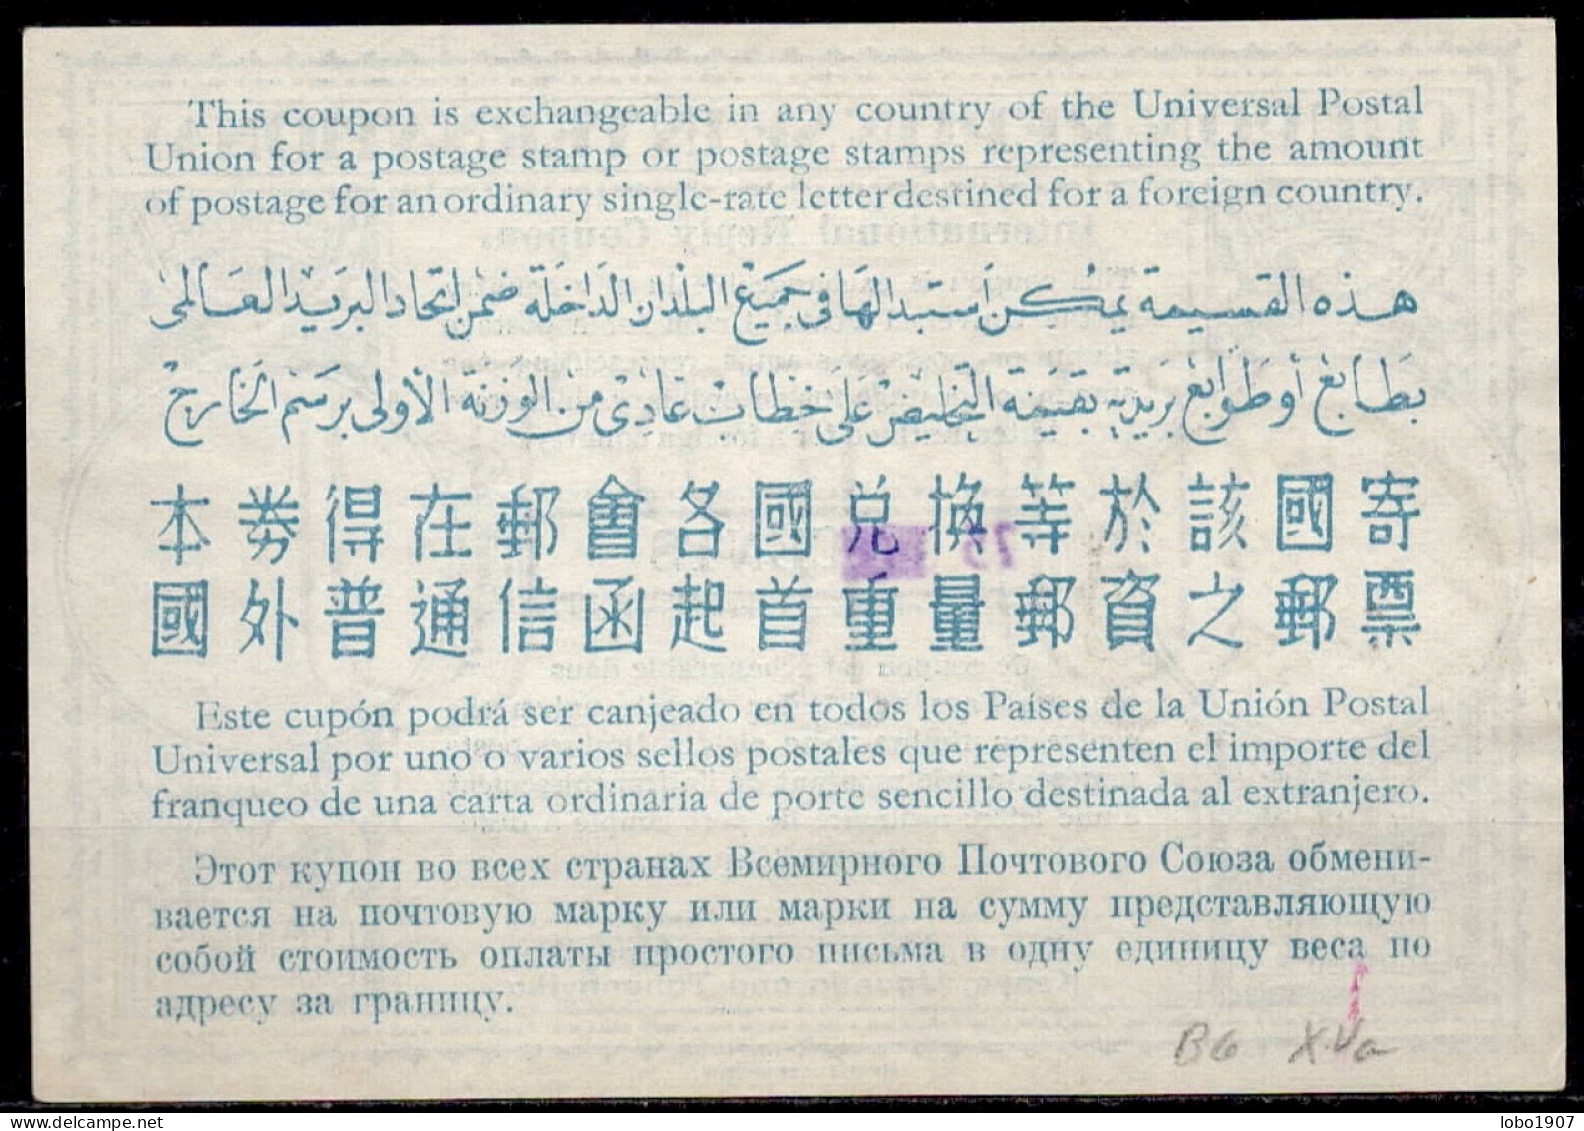 This coupon is exchangeable in any country of the Universal Postal
Union for a postage stamp or postage stamps representing the amount
of postage for an ordinary single-rate letter destined for a foreign country.
هذه القسيمة يمكن استبدالها في جميع البلدان الداخلة ضمن اتحاد البريد العالمى
بطابع أو طوابع بريدية بقيمة التخليص على خطابات عادى من الوزنة الأولى برسم الخارج
本券得在郵會各國兌換等於該國寄
國外普通信函起首重量郵資之郵票
75
Este cupón podrá ser canjeado en todos los Países de la Unión Postal
Universal por uno o varios sellos postales que representen el importe del
franqueo de una carta ordinaria de porte sencillo destinada al extranjero.
Этот купон во всех странах Всемирного Почтового Союза обмени-
вается на почтовую марку или марки на сумму представляющую
собой стоимость оплаты простого письма в одну единицу веса по
адресу за границу.
B6 X.Va
lobo1907